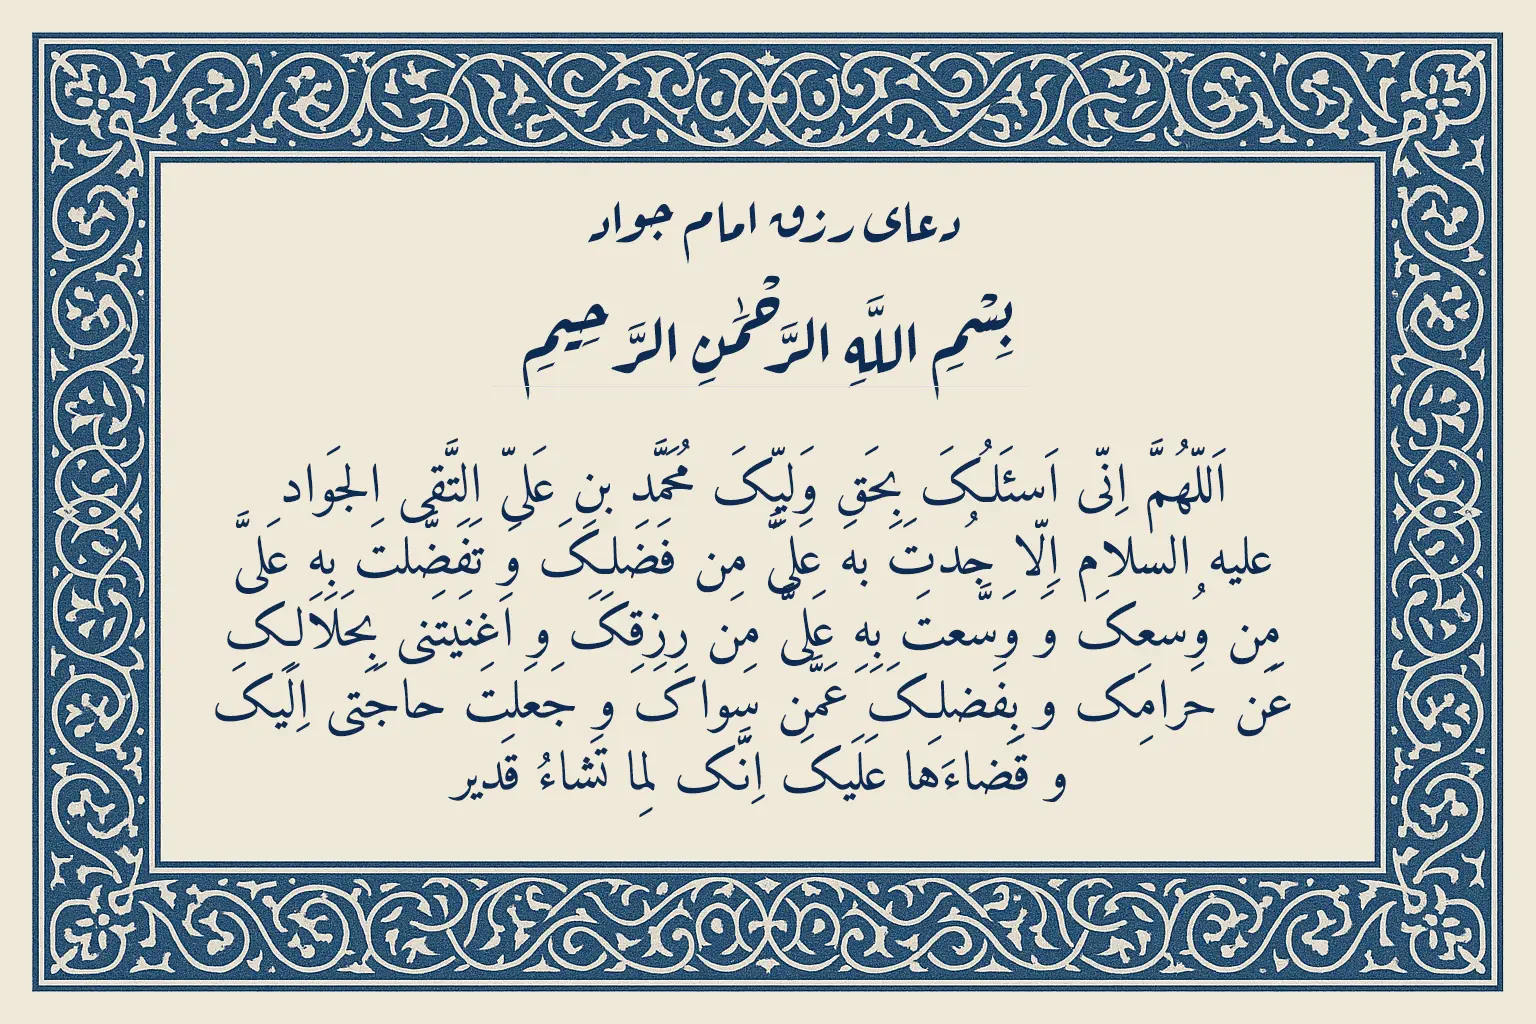 دعای رزق امام جواد
بِسْمِ اللَّهِ الرَّحْمَٰنِ الرَّحِیمِ
اَللّهُمَّ اِنّی اَسئَلُکَ بِحَقِ وَلِیِّکَ مُحَمَّد بنِ عَلیِّ التَّقیِ الجَواد
علیه السلام اِلّا جُدتَ به عَلیَّ مِن فَضَلِکَ وَ تَفَضَّلتَ بِهِ عَلیَّ
مِن وُسعِکَ وَ وَسَّعتَ بِهِ عَلیَّ مِن رِزقِکَ وَ اَغنَیتَنی بِحَلالِکَ
عَن حَرامِک و بِفَضلِکَ عَمَّن سِواکَ وَ جَعَلتَ حاجَتی اِلَیک
و قَضاءَها عَلَیکَ اِنَّک لِما تَشاءُ قَدیر